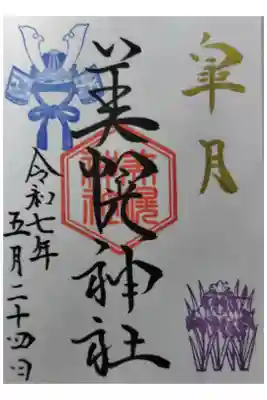 皐月
美幌神社
令和七年
五月二十四日